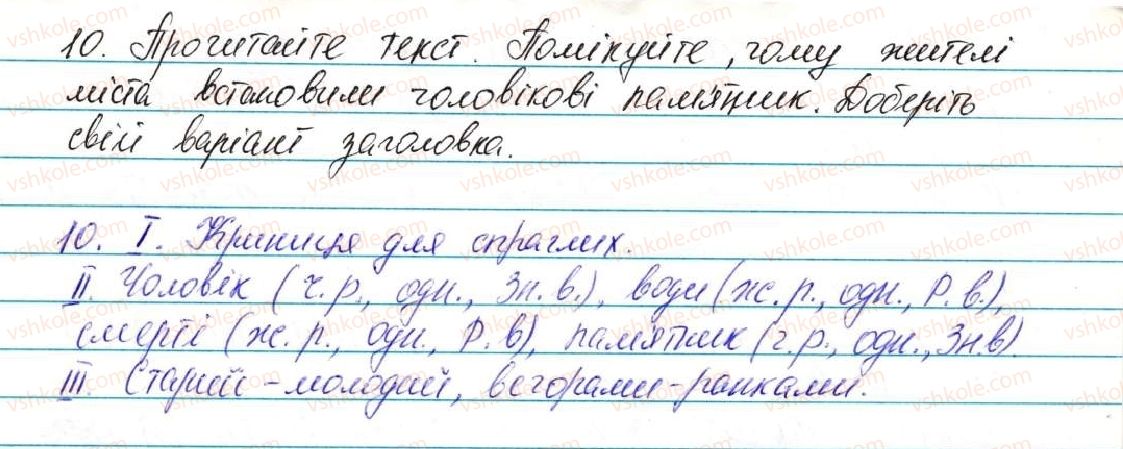 10. Прочитайте текст. Поміркуйте, чому жителі
міста встановили чоловікові пам'ятник. Доберіть
свій варіант заголовка.
10. I. Криниця для спраглих.
II. Чоловік (ч.р., одн., Зн.в.), води (ж.р., одн., Р.в.),
смерті (ж.р., одн., Р.в), пам'ятник (ч.р., одн., Зн.в).
III. Старий - молодий, вечорами - ранками.